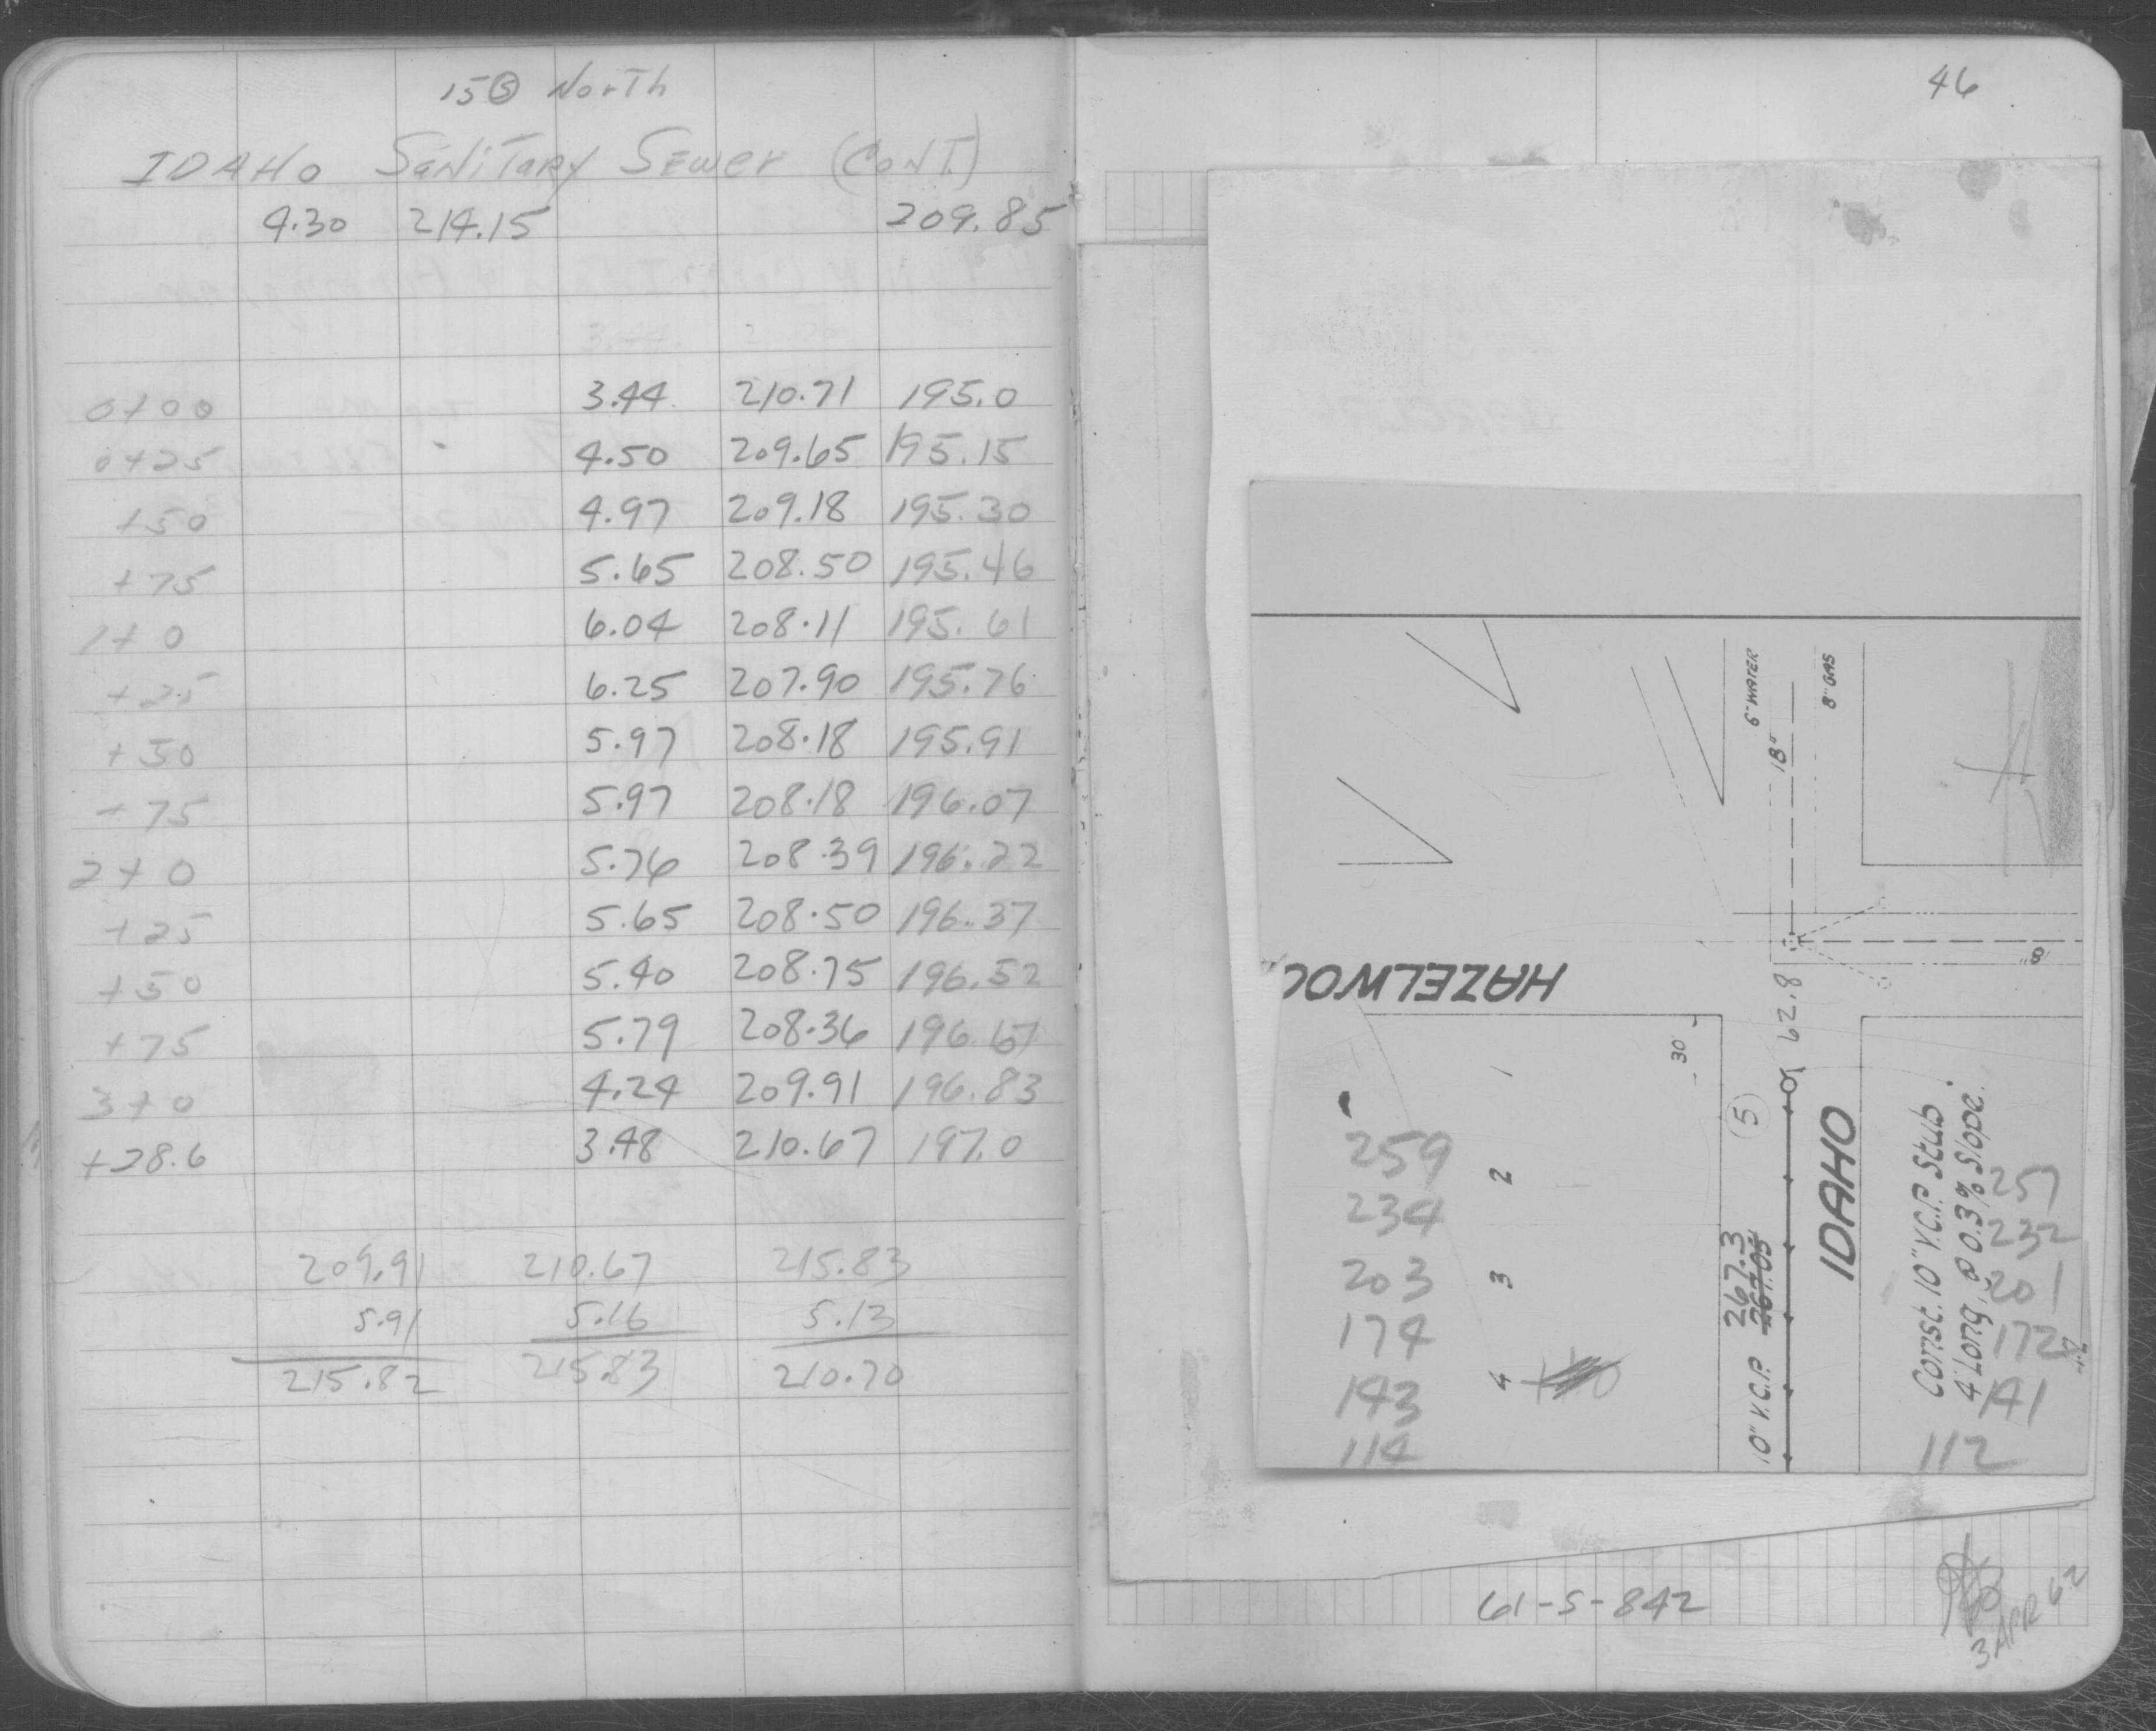 15⑤ North
IDAHO Sanitary Sewer (CONT.)
4.30 214.15 209.85
0+00 3.44 210.71 195.0
0+25 4.50 209.65 195.15
+50 4.97 209.18 195.30
+75 5.65 208.50 195.46
1+0 6.04 208.11 195.61
+25 6.25 207.90 195.76
+50 5.97 208.18 195.91
+75 5.97 208.18 196.07
2+0 5.76 208.39 196.22
+25 5.65 208.50 196.37
+50 5.40 208.75 196.52
+75 5.79 208.36 196.67
3+0 4.24 209.91 196.83
+28.6 3.48 210.67 197.0
209.91 210.67 215.83
5.91 5.16 5.13
215.82 215.83 210.70
46
6" WATER
18"
8" GAS
8"
HAZELWOO
62.8
30'
1
2
3
4
⑤
IDAHO
267.3
267.05
10" V.C.P.
Const. 10" V.C.P. Stub
4' Long, @ 0.3% Slope.
259
234
203
174
143
114
257
232
201
172
141
112
61-S-842
3 APR 62